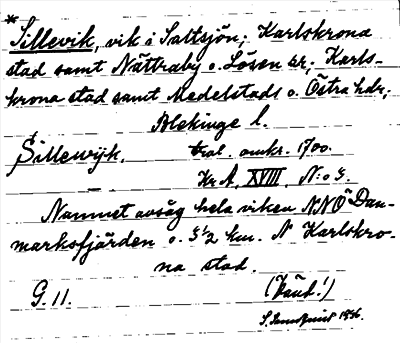 *
Sillevik, vik i Saltsjön; Karlskrona
stad samt Nättraby o. Lösen sr; Karls-
krona stad samt Medelstads o. Östra hdr;
Blekinge l.
Sillewijk, tral. omkr. 1700.
Kr A, XVIII, N:o 3.
Namnet avsåg hela viken NNÖ Dan-
marksfjärden o. 3 1/2 km. N Karlskro-
na stad.
G. 11. (känt!)
S. 1936.